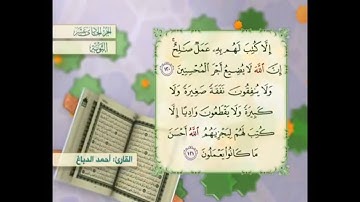 الجزء الحادي عشر
التوبة
إِلَّا كُتِبَ لَهُم بِهِ عَمَلٌ صَالِحٌ
إِنَّ اللَّهَ لَا يُضِيعُ أَجْرَ الْمُحْسِنِينَ ١٢٠
وَلَا يُنفِقُونَ نَفَقَةً صَغِيرَةً وَلَا
كَبِيرَةً وَلَا يَقْطَعُونَ وَادِيًا إِلَّا
كُتِبَ لَهُمْ لِيَجْزِيَهُمُ اللَّهُ أَحْسَنَ
مَا كَانُوا يَعْمَلُونَ ١٢١
القارئ: أحمد الدباغ